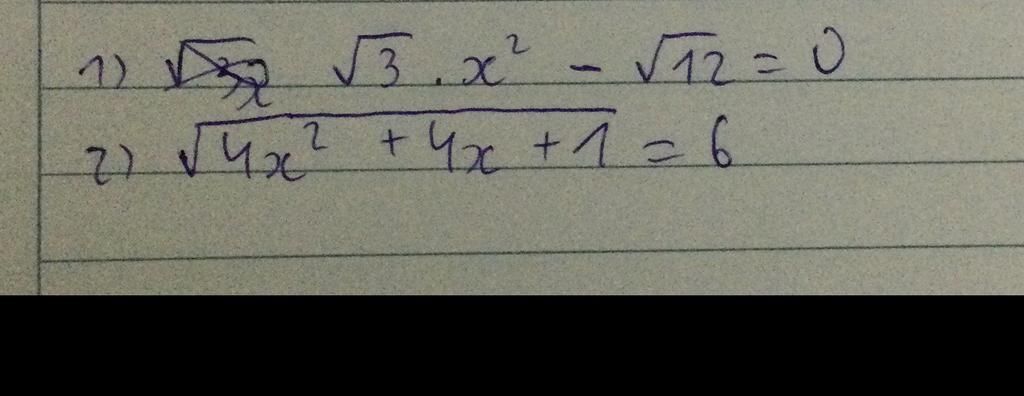 1) √3 . x² - √12 = 0
2) √(4x² + 4x + 1) = 6